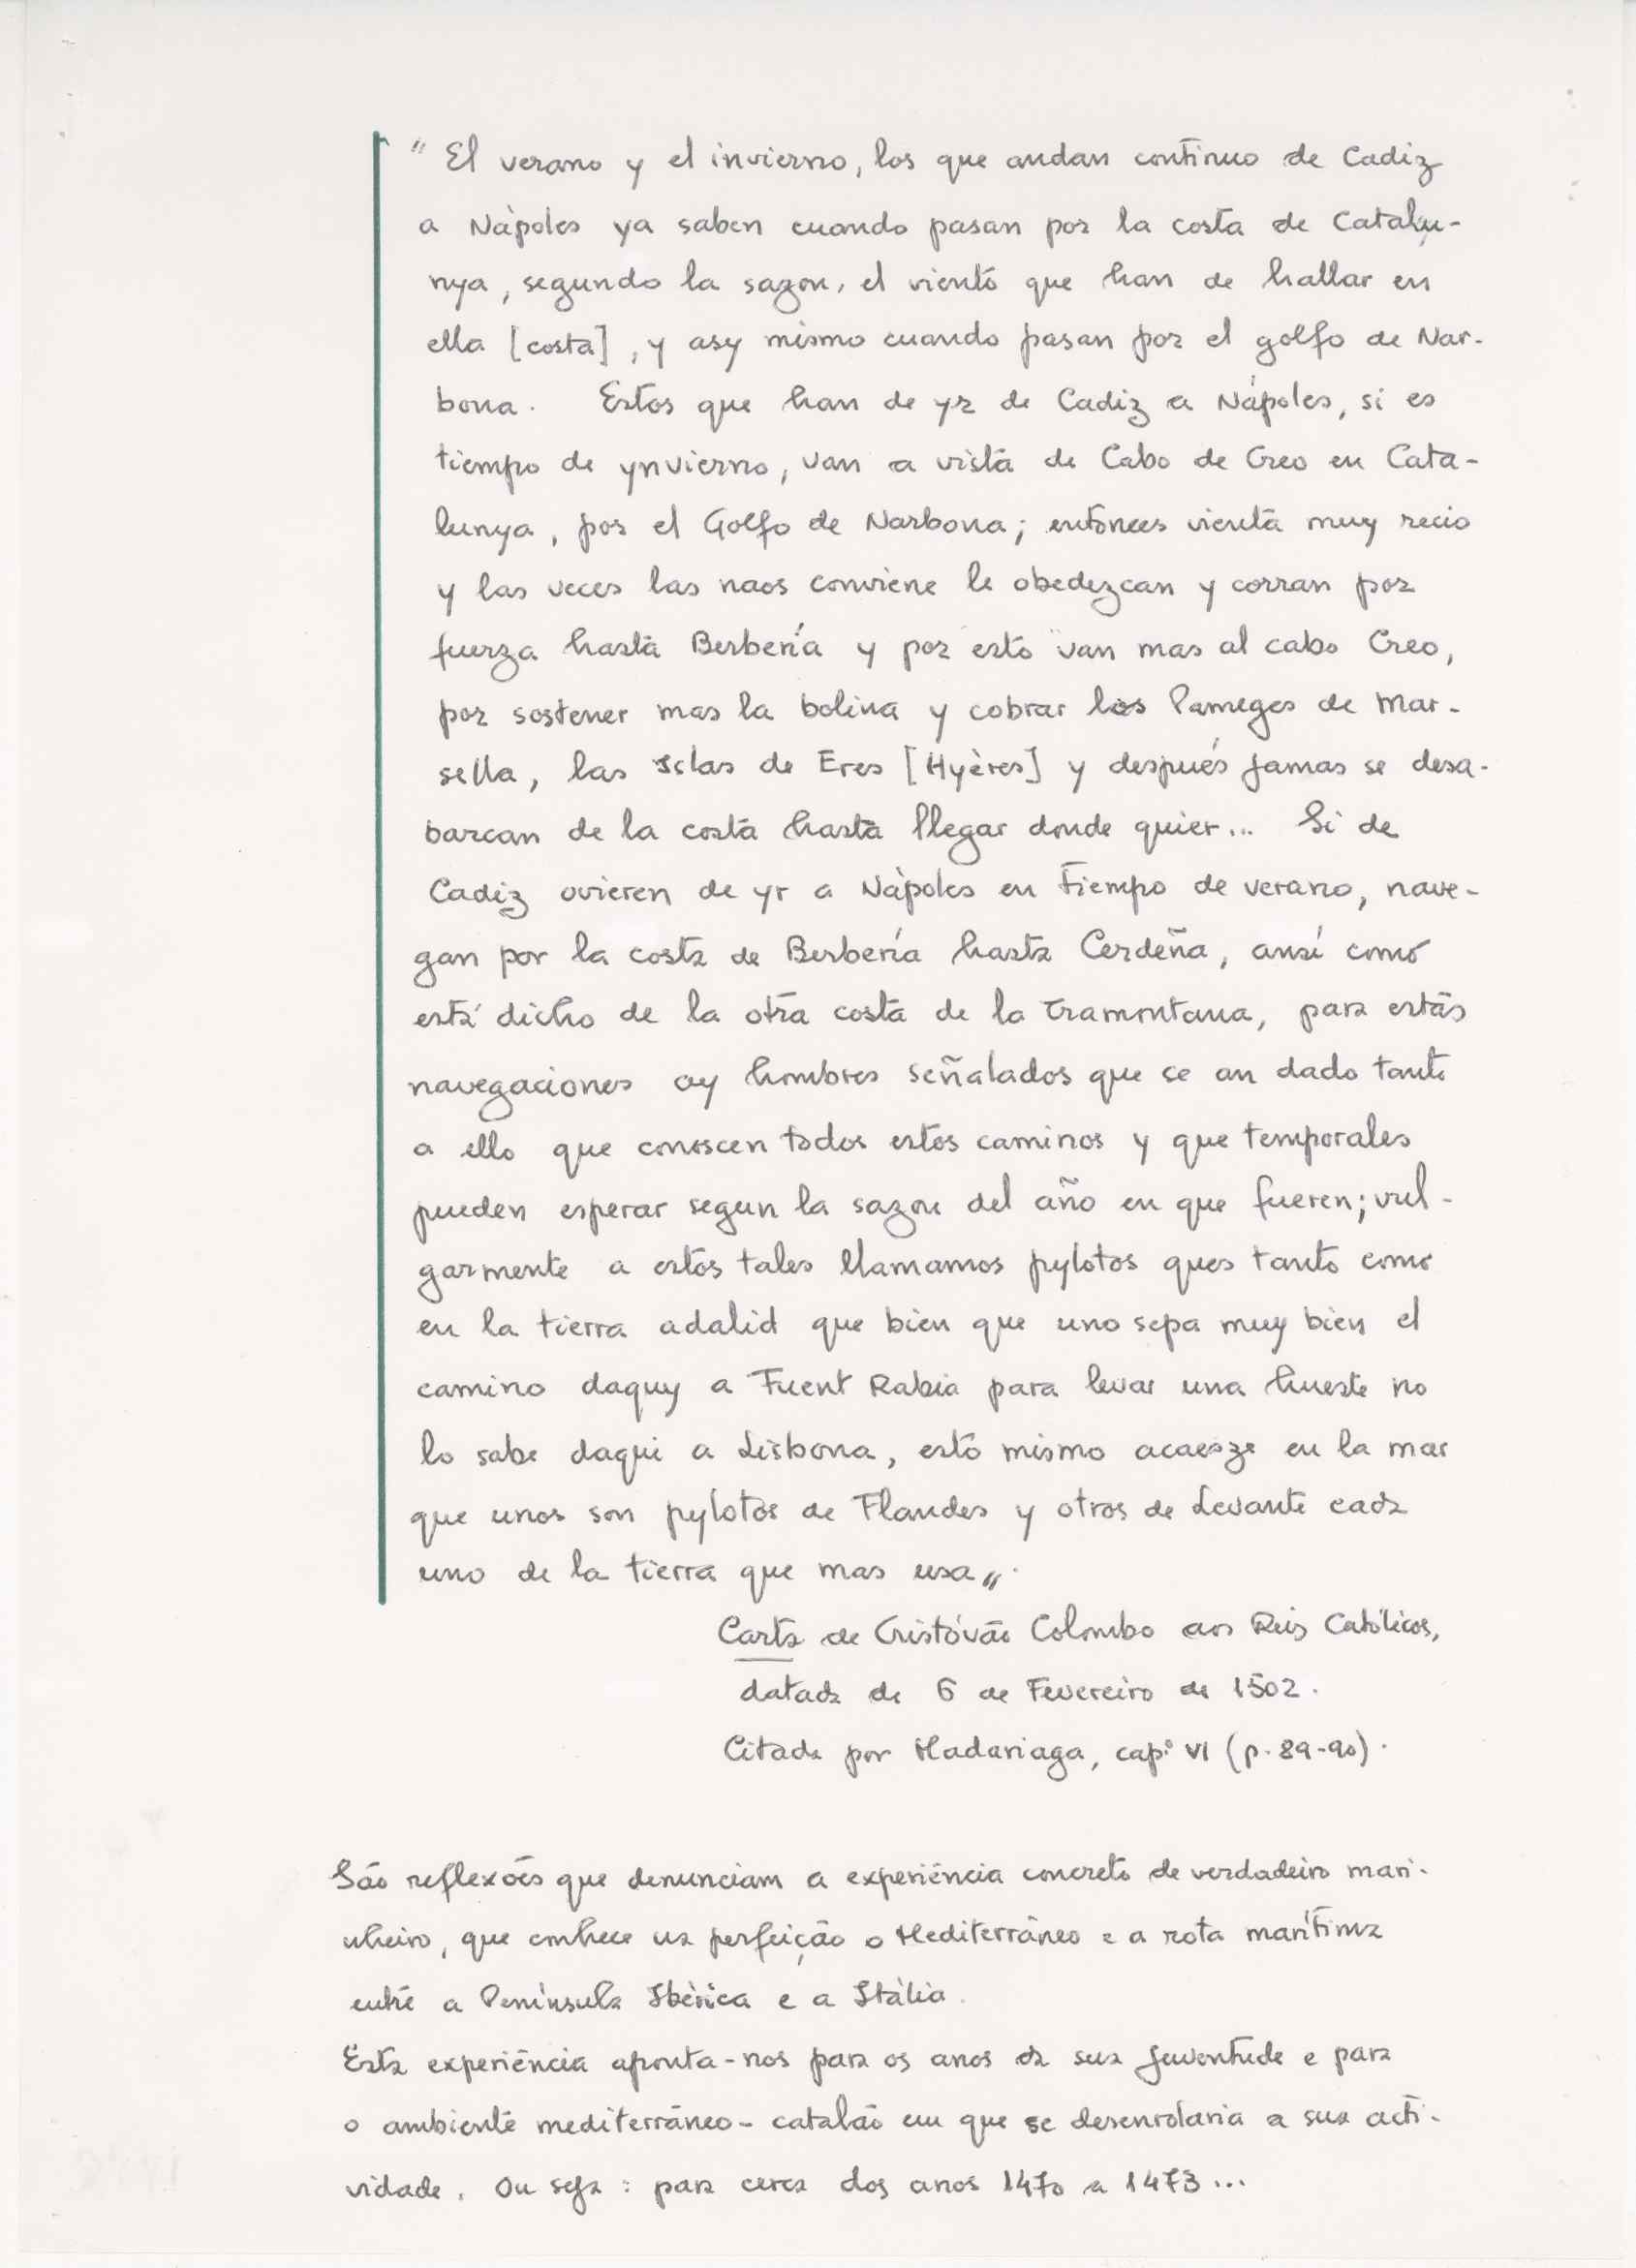 " El verano y el invierno, los que andan continuo de Cadiz
a Nàpoles ya saben cuando pasan por la costa de Catalu-
nya, segundo la sazon, el viento que han de hallar en
ella [costa], y asy mismo cuando pasan por el golfo de Nar-
bona. Estos que han de yr de Cadiz a Nápoles, si es
tiempo de ynvierno, van a vista de Cabo de Creo en Cata-
lunya, por el Golfo de Narbona; entonces vienta muy recio
y las veces las naos conviene le obedezcan y corran por
fuerza hasta Berbería y por esto van mas al cabo Creo,
por sostener mas la bolina y cobrar los Pameges de Mar-
sella, las Islas de Eres [Hyères] y después jamas se desa-
barcan de la costa hasta llegar donde quier... Si de
Cadiz ovieren de yr a Nàpoles en tiempo de verano, nave-
gan por la costa de Berbería hasta Cerdeña, ansí como
está dicho de la otra costa de la Tramontana, para estas
navegaciones ay hombres señalados que se an dado tanto
a ello que conoscen todos estos caminos y que temporales
pueden esperar segun la sazon del año en que fueren; vul-
garmente a estos tales llamamos pylotos ques tanto como
en la tierra adalid que bien que uno sepa muy bien el
camino daquy a Fuent Rabia para levar una hueste no
lo sabe daqui a Lisbona, esto mismo acaesze en la mar
que unos son pylotos de Flandes y otros de Levante cada
uno de la tierra que mas usa".
Carta de Cristóvão Colombo aos Reis Católicos,
datada de 6 de Fevereiro de 1502.
Citada por Madariaga, cap.º VI (p. 89-90).
São reflexões que denunciam a experiência concreta de verdadeiro mari-
nheiro, que conhece na perfeição o Mediterrâneo e a rota marítima
entre a Península Ibérica e a Itália.
Esta experiência aponta-nos para os anos da sua juventude e para
o ambiente mediterrâneo-catalão em que se desenrolaria a sua acti-
vidade. Ou seja: para cerca dos anos 1470 a 1473...